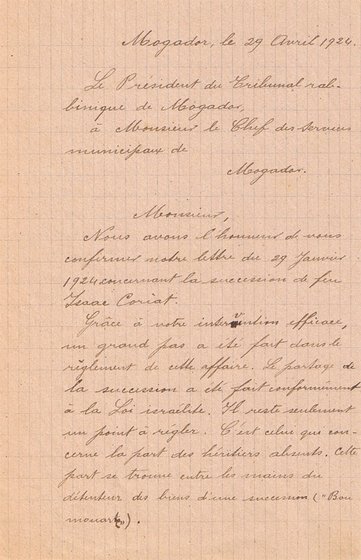 Mogador, le 29 Avril 1924.
Le Président du Tribunal rab-
binique de Mogador,
à Monsieur le Chef des Services
municipaux de
Mogador.
Monsieur,
Nous avons l'honneur de vous
confirmer notre lettre du 29 Janvier
1924 concernant la succession de feu
Isaac Coriat.
Grâce à votre intervention efficace,
un grand pas a été fait dans le
règlement de cette affaire. Le partage de
la succession a été fait conformément
à la Loi israélite. Il reste seulement
un point à régler. C'est celui que con-
cerne la part des héritiers absents. Cette
part se trouve entre les mains du
détenteur des biens d'une succession ("Bou